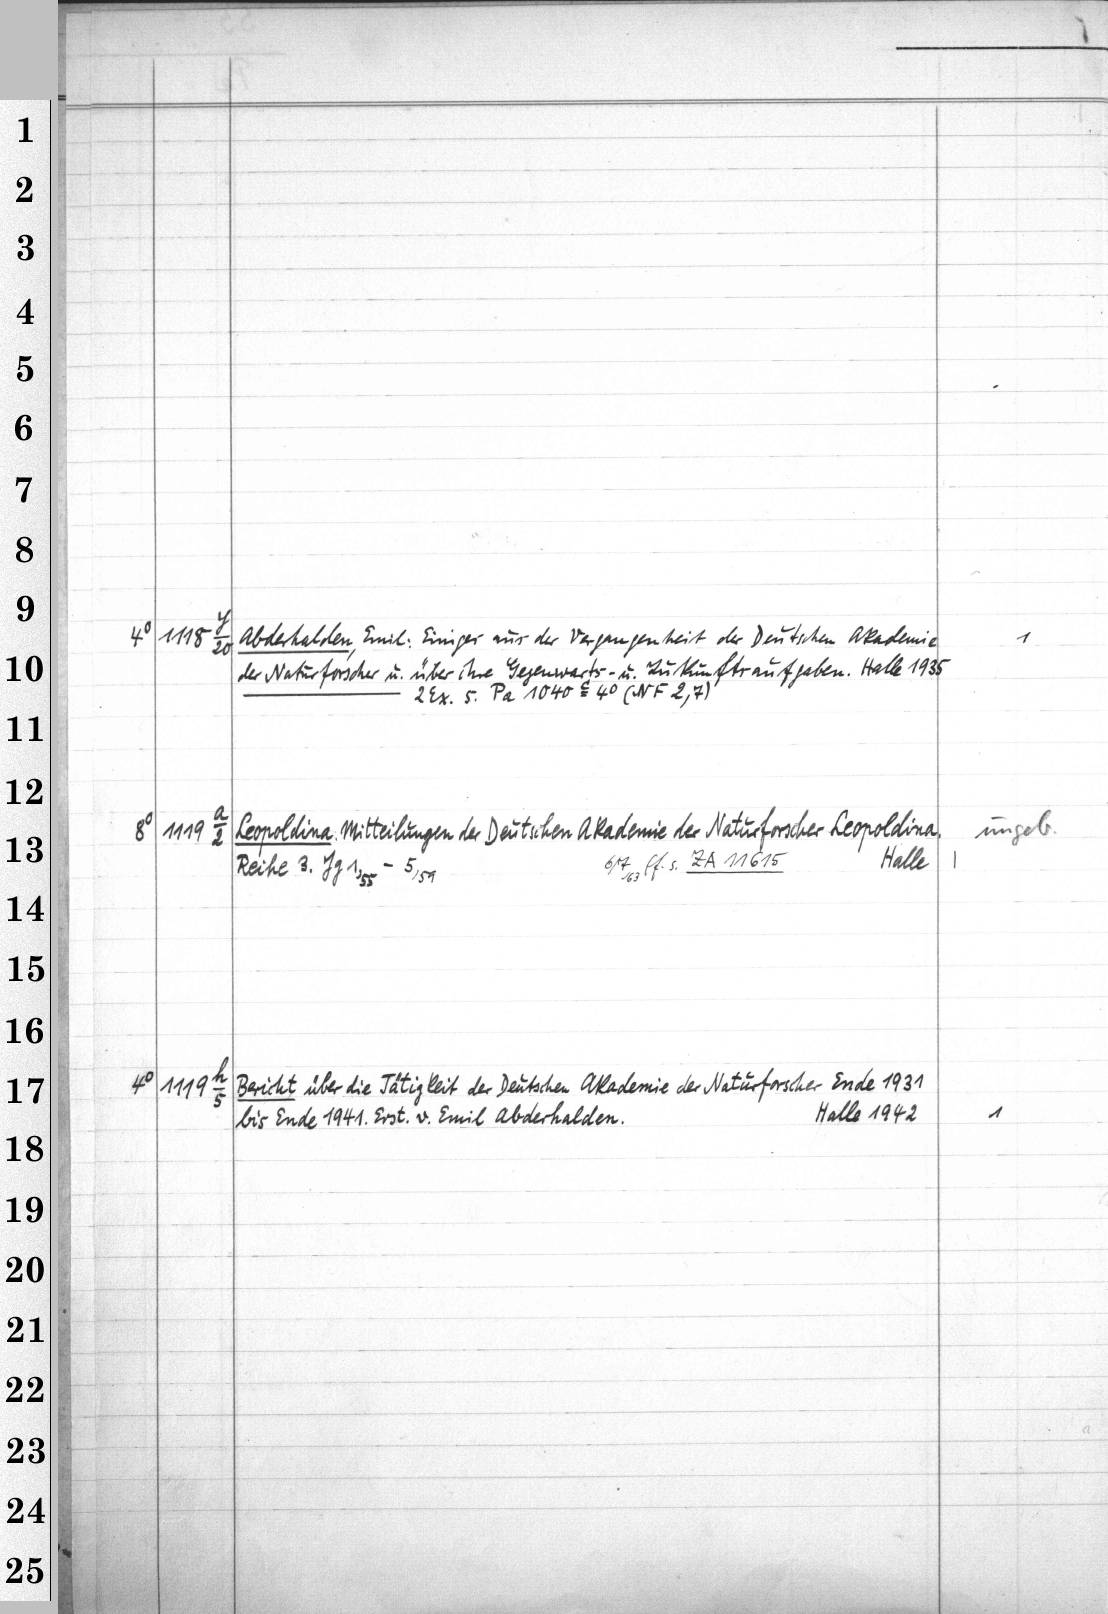 1
2
3
4
5
6
7
8
9
4° 1118 y/20 Abderhalden, Emil: Einiges aus der Vergangenheit der Deutschen Akademie 1
10
der Naturforscher u. über ihre Gegenwarts- u. Zukunftsaufgaben. Halle 1935
2 Ex. s. Pa 1040 c 4° (NF 2,7)
11
12
8° 1119 a/2 Leopoldina. Mitteilungen der Deutschen Akademie der Naturforscher Leopoldina. ungeb.
13
Reihe 3. Jg 1,55 - 5,59 6/7,63 ff. s. ZA 11615 Halle 1
14
15
16
4° 1119 h/5 Bericht über die Tätigkeit der Deutschen Akademie der Naturforscher Ende 1931
17
bis Ende 1941. Erst. v. Emil Abderhalden. Halle 1942 1
18
19
20
21
22
23
24
25